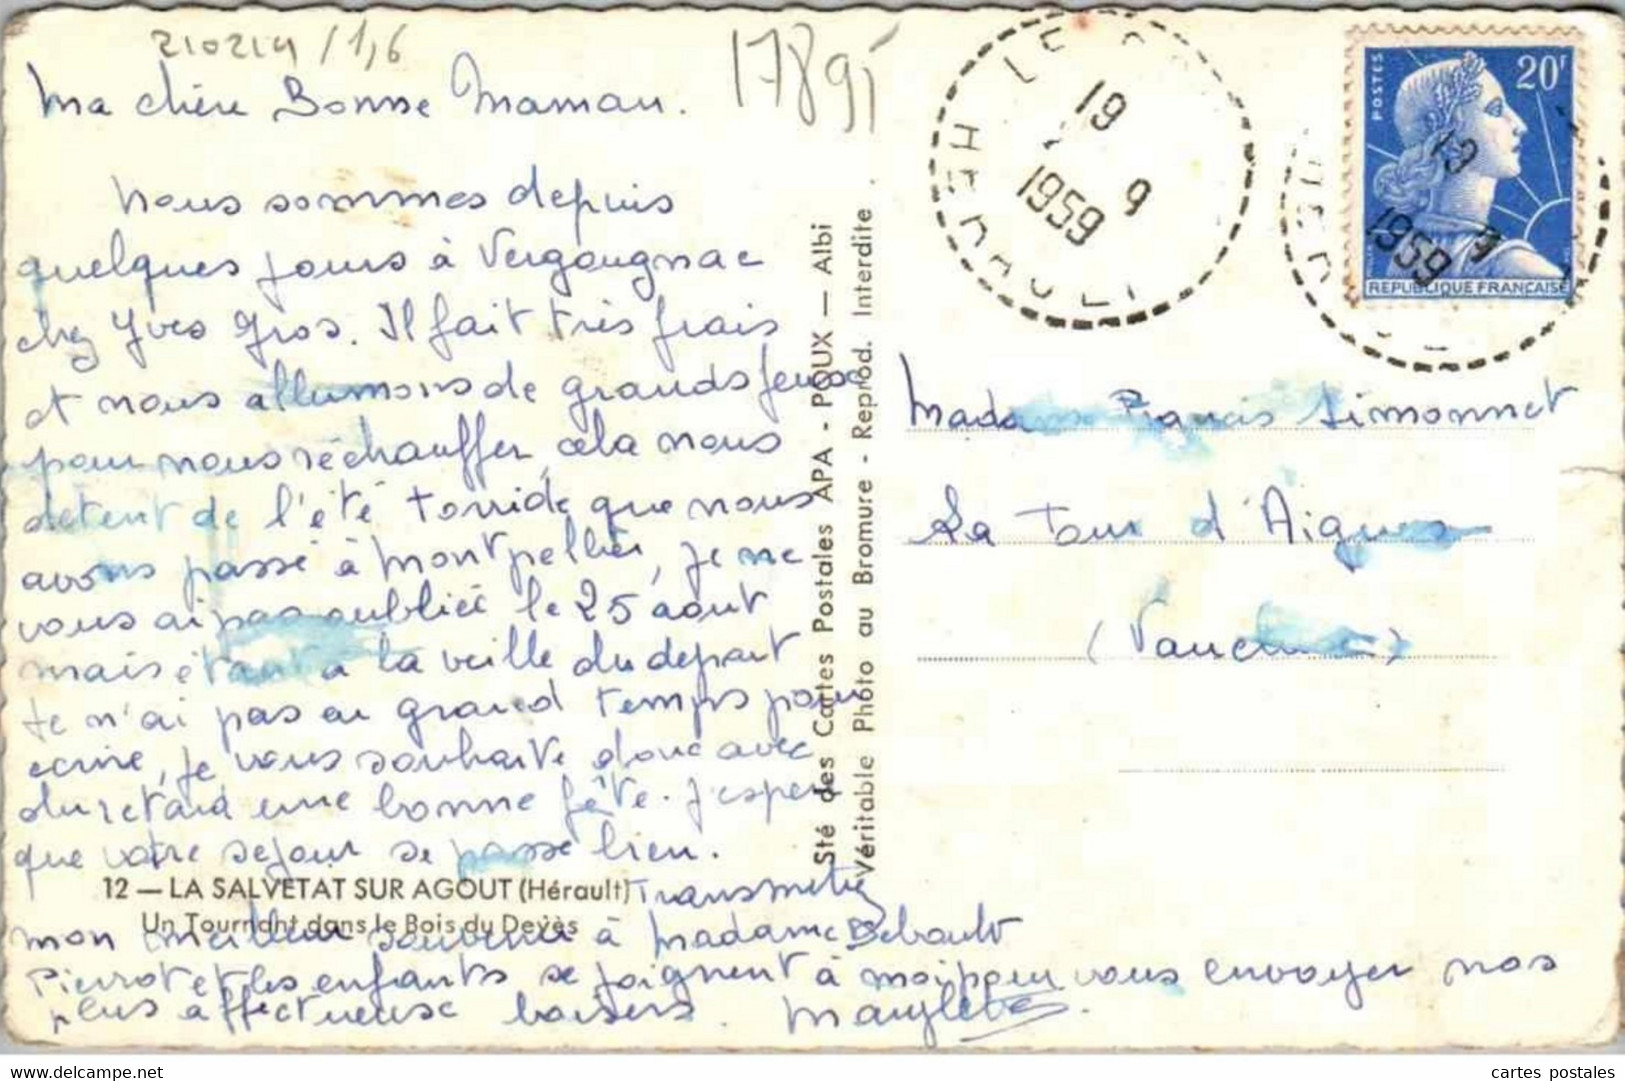 210214/1,6
17895
Ma chère Bonne Maman.
Nous sommes depuis
quelques jours à Vergougnac
chez Yves Gros. Il fait très frais
et nous allumons de grands feux
pour nous réchauffer, cela nous
détent de l'été torride que nous
avons passé à Montpellier, je ne
vous ai pas oubliée le 25 août
mais étant à la veille du départ
je n'ai pas eu grand temps pour
écrire, je vous souhaite donc avec
du retard une bonne fête. J'espère
que votre séjour se passe bien.
Transmettez
mon meilleur souvenir à Madame Debault
Pierrot et les enfants se joignent à moi pour vous envoyer nos
plus affectueuse baisers.
12 — LA SALVETAT SUR AGOUT (Hérault)
Un Tournant dans le Bois du Deyès
Sté des Cartes Postales APA - POUX — Albi
Véritable Photo au Bromure - Reprod. Interdite.
19
9
1959
HERAULT
POSTES
20F
REPUBLIQUE FRANÇAISE
19
9
1959
Madame Francis Simonnet
La Tour d'Aigues
(Vaucluse)
www.delcampe.net
cartes postales